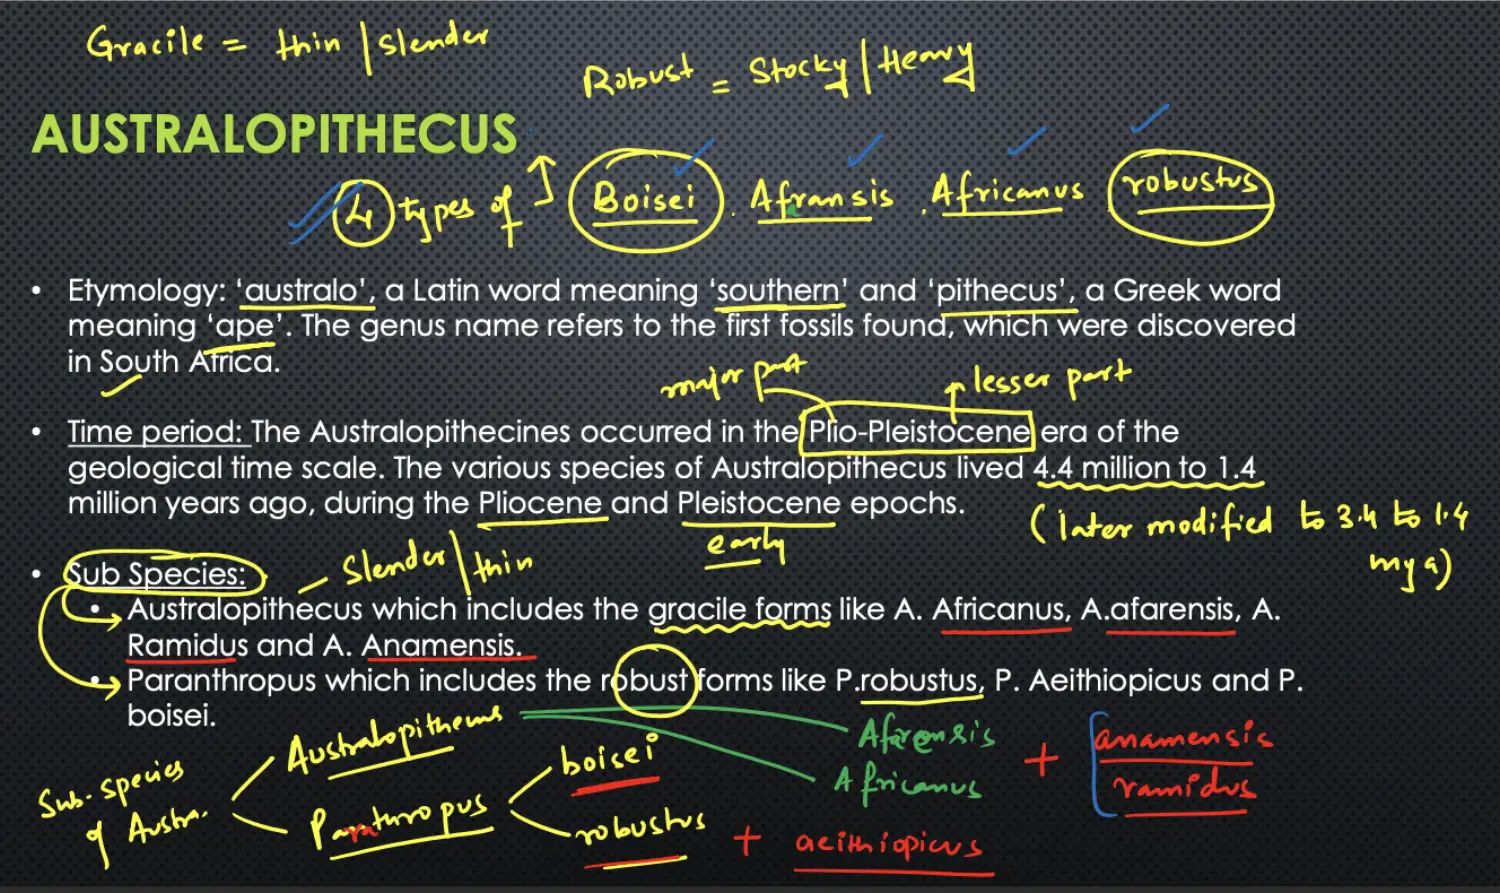 Gracile = thin / Slender
Robust = Stocky / Heavy
AUSTRALOPITHECUS
4 types of Boisei. Afransis. Africanus robustus
• Etymology: ‘australo’, a Latin word meaning ‘southern’ and ‘pithecus’, a Greek word
meaning ‘ape’. The genus name refers to the first fossils found, which were discovered
in South Africa.
major part
lesser part
• Time period: The Australopithecines occurred in the Plio-Pleistocene era of the
geological time scale. The various species of Australopithecus lived 4.4 million to 1.4
million years ago, during the Pliocene and Pleistocene epochs.
(later modified to 3.4 to 1.4
mya)
early
• Sub Species:
Slender / thin
• Australopithecus which includes the gracile forms like A. Africanus, A.afarensis, A.
Ramidus and A. Anamensis.
• Paranthropus which includes the robust forms like P.robustus, P. Aeithiopicus and P.
boisei.
Sub-species
of Austra.
Australopithecus
Paranthropus
boisei
robustus + aeithiopicus
Afarensis
Africanus
+ anamensis
ramidus